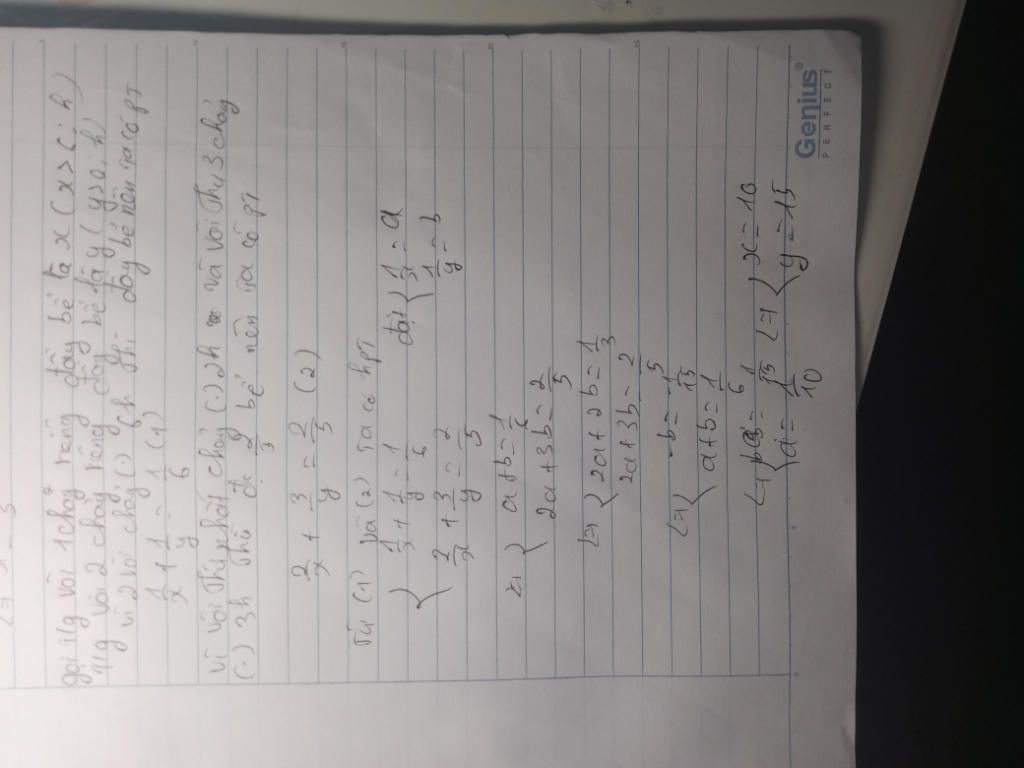 gọi t/g vòi 1 chảy riêng đầy bể là x (x>6; h)
t/g vòi 2 chảy riêng đầy bể là y (y>0; h)
vì 2 vòi chảy (.) 6h thì đầy bể nên ta có PT
1/x + 1/y = 1/6 (1)
Vì vòi thứ nhất chảy (.) 2h và vòi thứ 3 chảy
(.) 3h thì đc 2/3 bể nên ta có PT
2/x + 3/y = 2/3 (2)
Từ (1) và (2) ta có hpt
{ 1/x + 1/y = 1/6 đặt { 1/x = a
2/x + 3/y = 2/5 1/y = b
<=> { a+b = 1/6
2a+3b = 2/5
<=> { 2a+2b = 1/3
2a+3b = 2/5
<=> { -b = -1/15
a+b = 1/6
<=> { b = 1/15 <=> { x = 10
a = 1/10 y = 15
Genius®
PERFECT